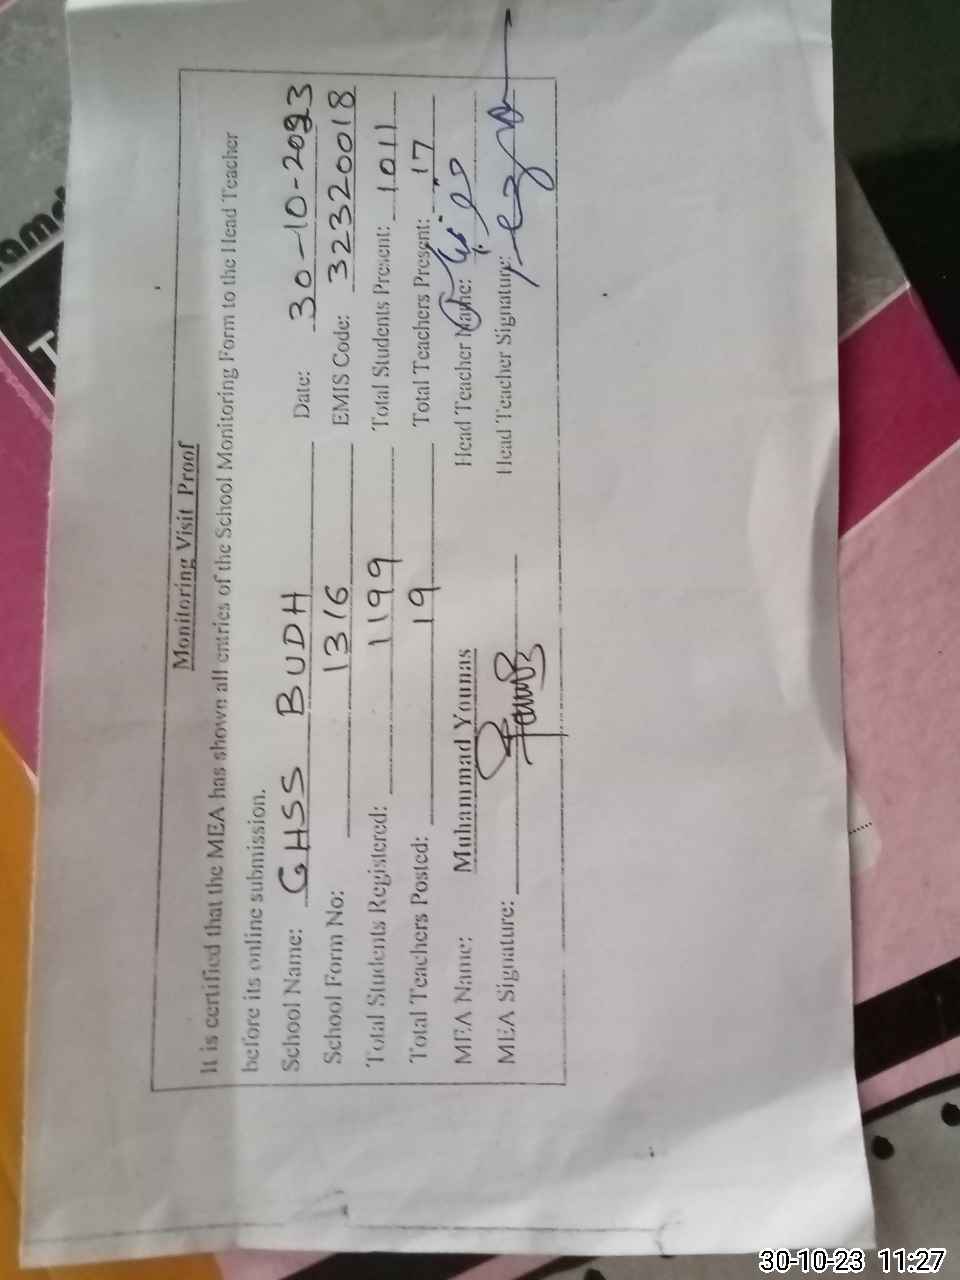 Monitoring Visit Proof
It is certified that the MEA has shown all entries of the School Monitoring Form to the Head Teacher
before its online submission.
School Name: GHSS BUDH Date: 30-10-2023
School Form No: 1316 EMIS Code: 32320018
Total Students Registered: 1199 Total Students Present: 1011
Total Teachers Posted: 19 Total Teachers Present: 17
MEA Name: Muhammad Younas Head Teacher Name:
MEA Signature: Head Teacher Signature:
30-10-23 11:27